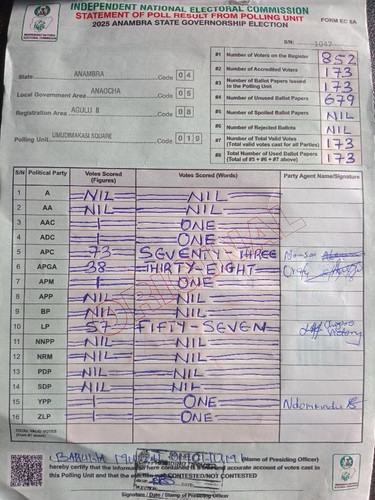 INDEPENDENT NATIONAL ELECTORAL COMMISSION
STATEMENT OF POLL RESULT FROM POLLING UNIT
2025 ANAMBRA STATE GOVERNORSHIP ELECTION
FORM EC 8A
S/N: 1047
State ANAMBRA Code 04
Local Government Area ANAOCHA Code 05
Registration Area AGULU II Code 08
Polling Unit UMUDIMAKASI SQUARE Code 019
#1 Number of Voters on the Register 852
#2 Number of Accredited Voters 173
#3 Number of Ballot Papers Issued to the Polling Unit 173
#4 Number of Unused Ballot Papers 679
#5 Number of Spoiled Ballot Papers NIL
#6 Number of Rejected Ballots NIL
#7 Number of Total Valid Votes (Total valid votes cast for all Parties) 173
#8 Total Number of Used Ballot Papers (Total of #5 + #6 + #7 above) 173
S/N Political Party Votes Scored (Figures) Votes Scored (Words) Party Agent Name/Signature
1 A NIL NIL
2 AA NIL NIL
3 AAC 1 ONE
4 ADC 1 ONE
5 APC 73 SEVENTY-THREE
6 APGA 38 THIRTY-EIGHT
7 APM 1 ONE
8 APP NIL NIL
9 BP NIL NIL
10 LP 57 FIFTY-SEVEN
11 NNPP NIL NIL
12 NRM NIL NIL
13 PDP NIL NIL
14 SDP NIL NIL
15 YPP 1 ONE
16 ZLP 1 ONE
TOTAL VALID VOTES
ORIGINAL
(Name of Presiding Officer)
hereby certify that the information here contained is a true and accurate account of votes cast in
this Polling Unit and that the election was CONTESTED/NOT CONTESTED
Signature / Date / Stamp of Presiding Officer